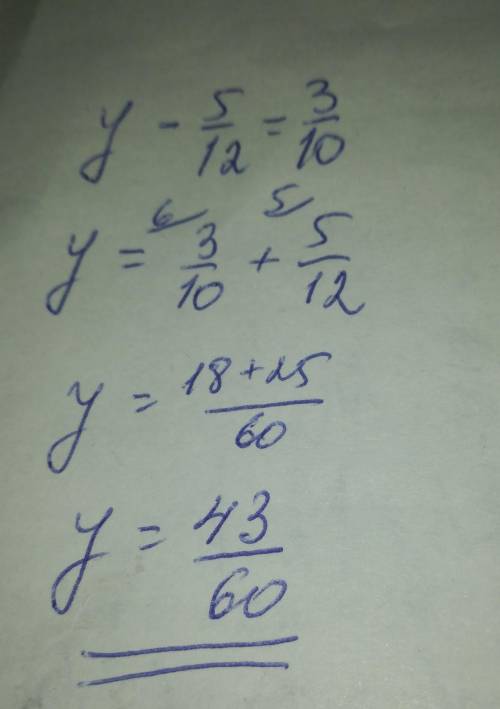 y - 5/12 = 3/10
6 5
y = 3/10 + 5/12
y = 18+25/60
y = 43/60